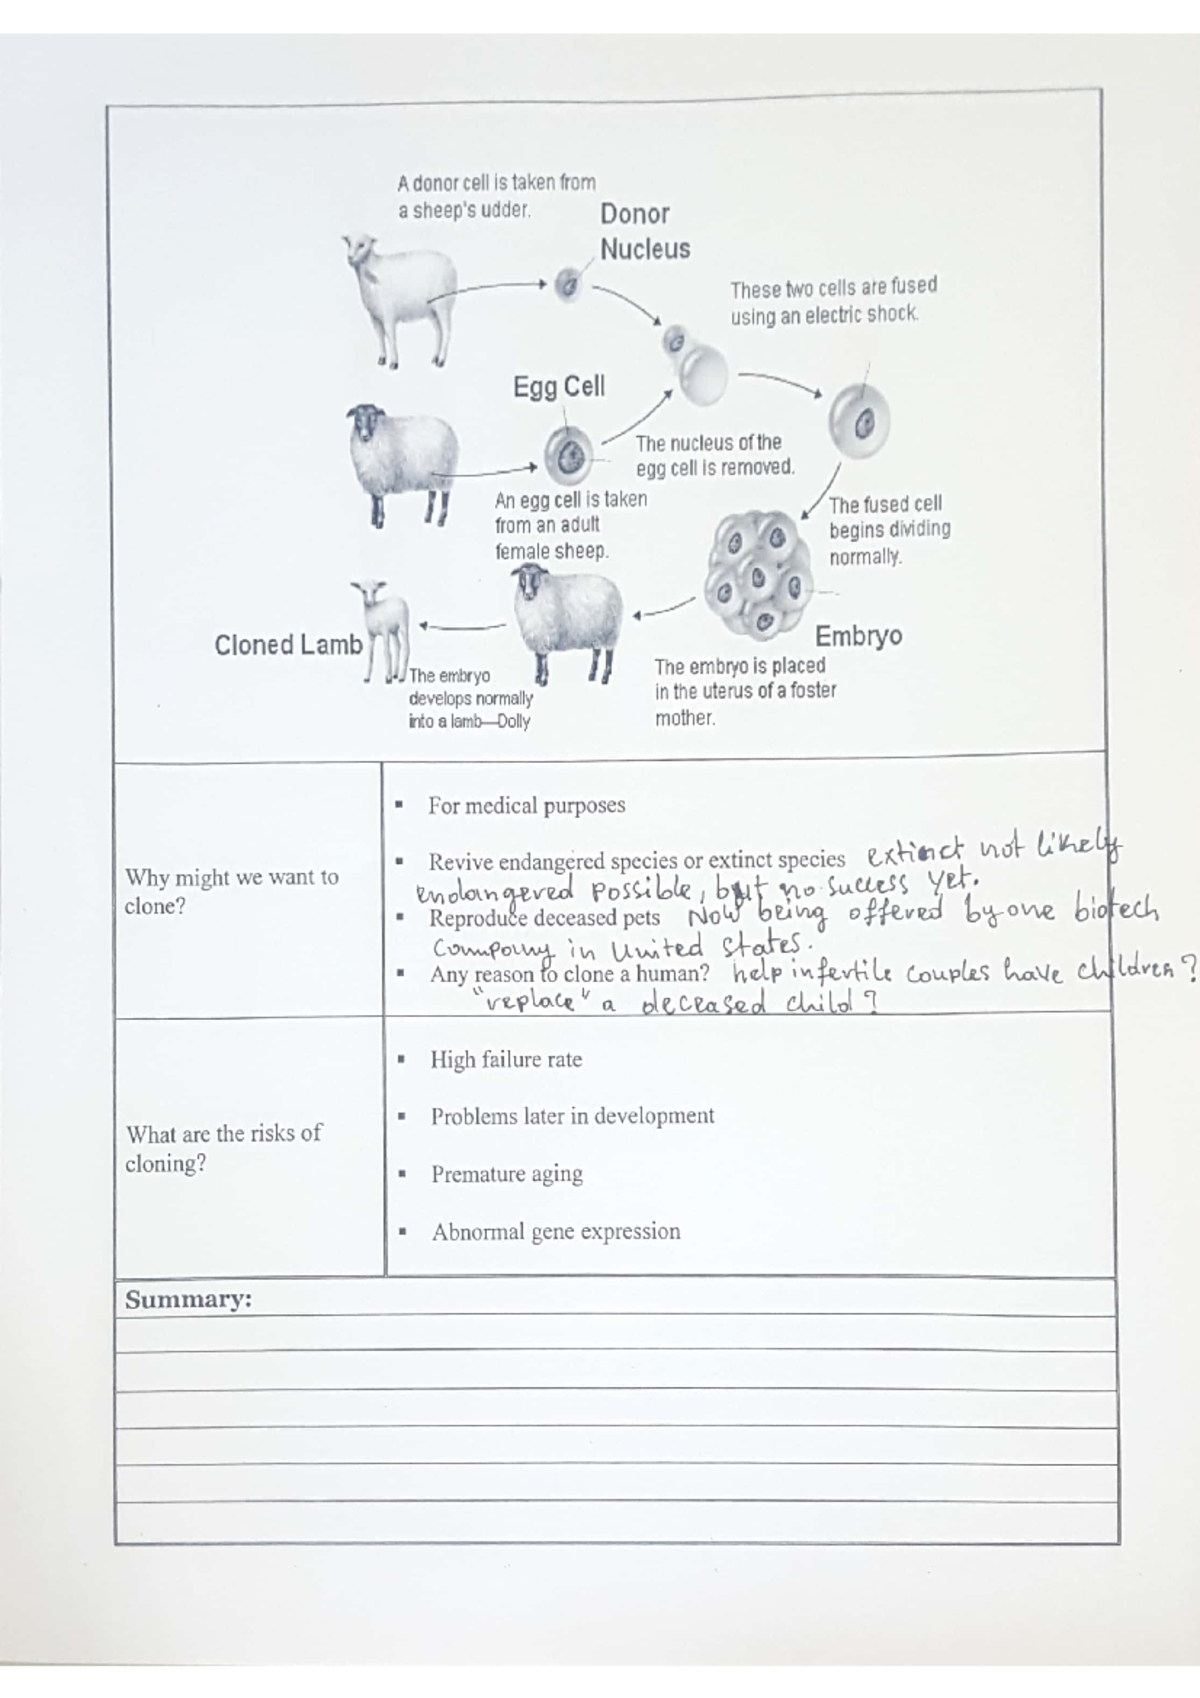 A donor cell is taken from
a sheep's udder.
Donor
Nucleus
These two cells are fused
using an electric shock.
Egg Cell
The nucleus of the
egg cell is removed.
An egg cell is taken
from an adult
female sheep.
The fused cell
begins dividing
normally.
Embryo
The embryo is placed
in the uterus of a foster
mother.
Cloned Lamb
The embryo
develops normally
into a lamb—Dolly
Why might we want to
clone?
▪ For medical purposes
▪ Revive endangered species or extinct species extinct not likely
endangered possible, but no success yet.
▪ Reproduce deceased pets Now being offered by one biotech
Company in United States.
▪ Any reason to clone a human? help infertile couples have children?
"replace" a deceased child?
What are the risks of
cloning?
▪ High failure rate
▪ Problems later in development
▪ Premature aging
▪ Abnormal gene expression
Summary: